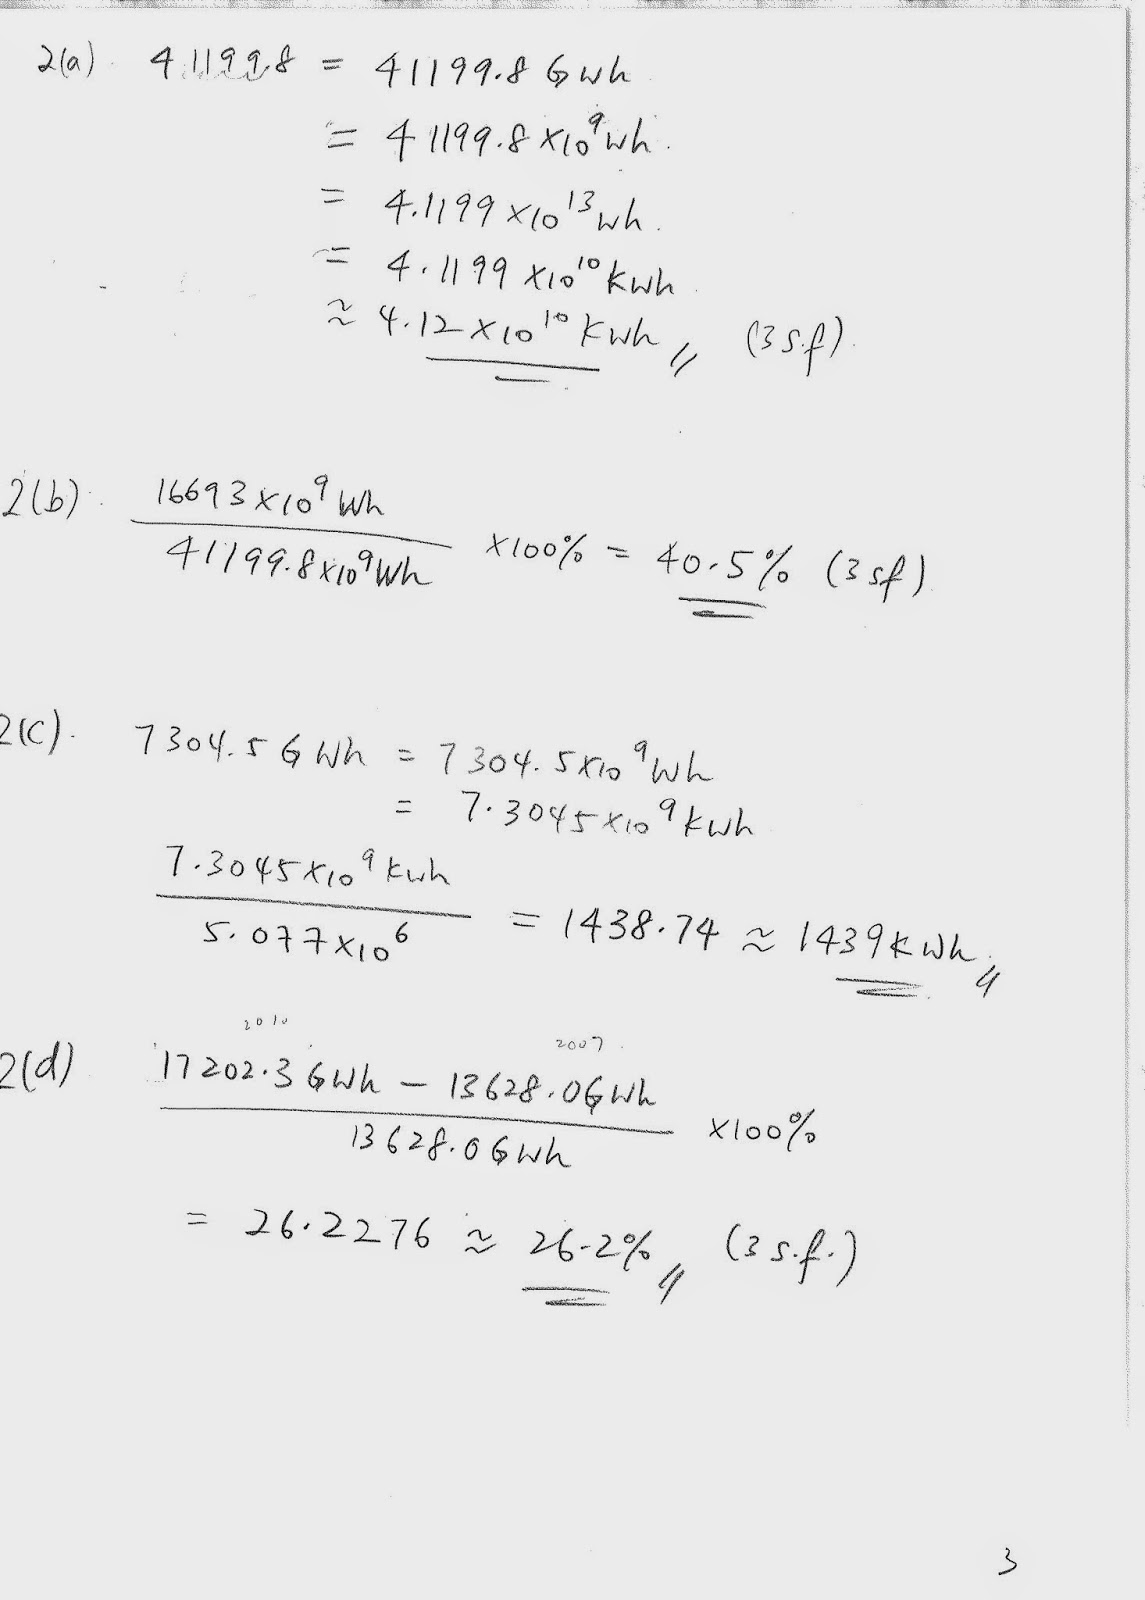 2(a). 411998 = 41199.8 GWh
= 41199.8 ×10⁹ Wh.
= 4.1199 ×10¹³ Wh.
= 4.1199 ×10¹⁰ kWh
≈ 4.12 ×10¹⁰ kWh,, (3 s.f).
2(b). 16693×10⁹ Wh / 41199.8×10⁹ Wh ×100% = 40.5% (3 sf)
2(c). 7304.5 GWh = 7304.5×10⁹ Wh
= 7.3045×10⁹ kWh
7.3045×10⁹ kWh / 5.077×10⁶ = 1438.74 ≈ 1439 kWh,,
2010 2007
2(d) 17202.3 GWh − 13628.0 GWh / 13628.0 GWh ×100%
= 26.2276 ≈ 26.2%,, (3 s.f.)
3